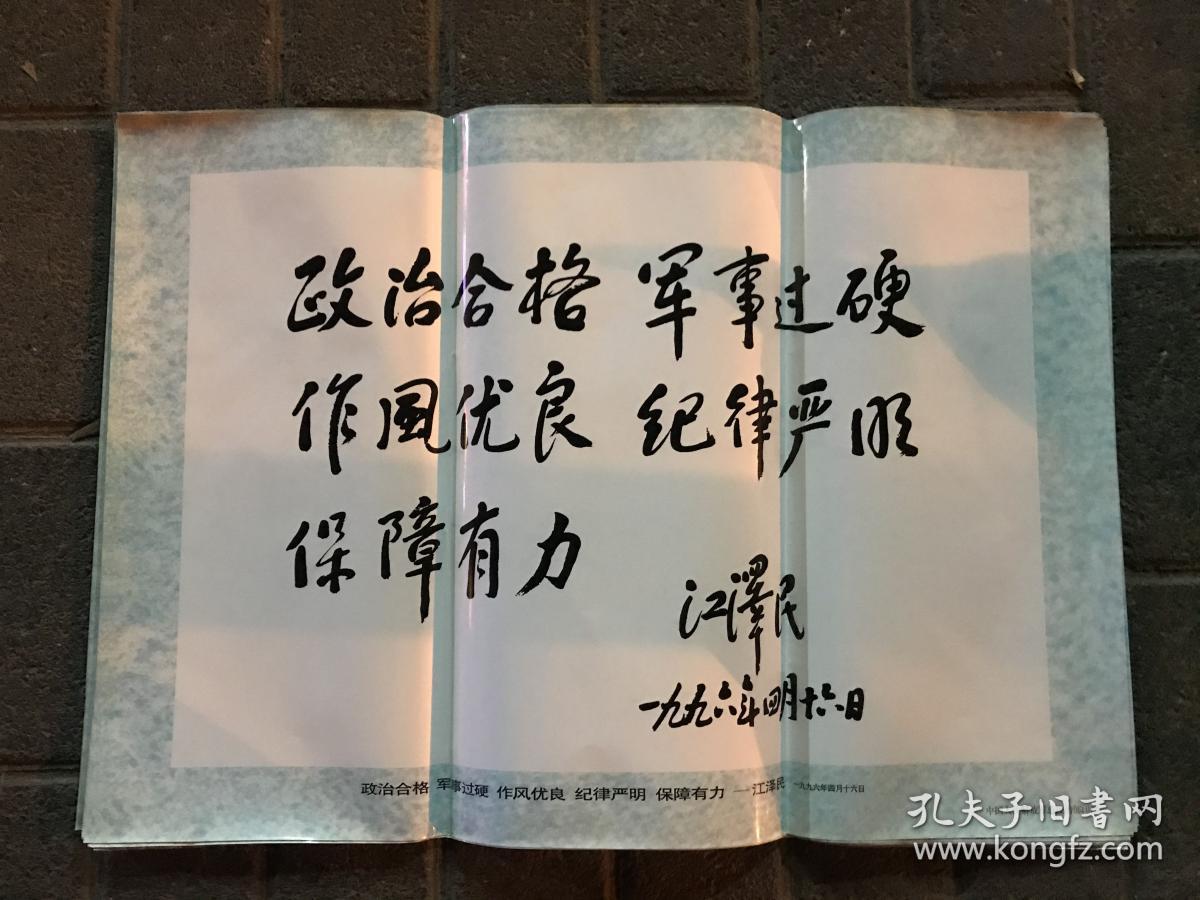 政治合格 军事过硬
作風优良 纪律严明
保障有力
江澤民
一九九六年四月十六日
政治合格 军事过硬 作风优良 纪律严明 保障有力 — 江泽民 一九九六年四月十六日
孔夫子旧書网
www.kongfz.com